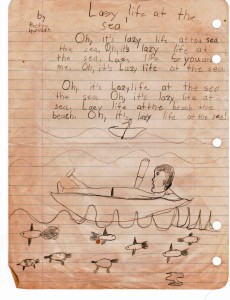 Lazy life at the
sea!
by
Oh, it's lazy life at the sea
the sea. Oh, it's lazy life at
the sea. Lazy life for you and
me. Oh, it's Lazy life at the sea.
Oh, it's Lazy life at the sea
the sea. Oh, it's lazy life at the
sea. Lazy life at the beach the
beach. Oh, it's lazy life at the sea!